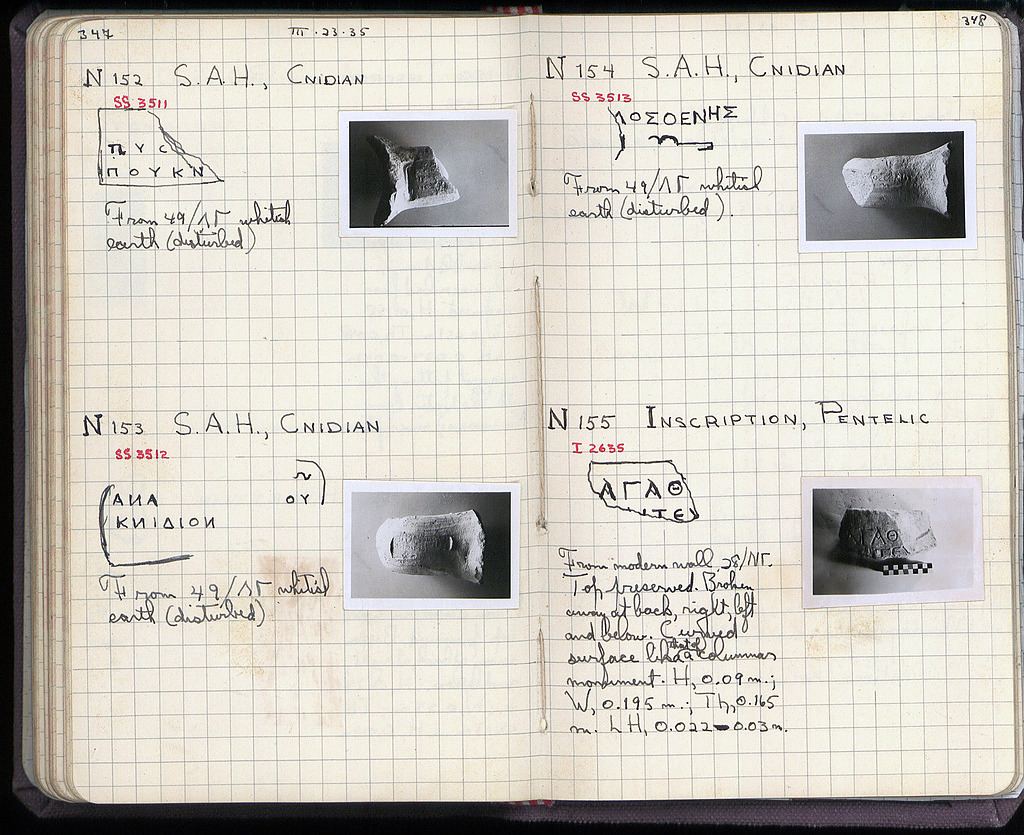 347
III·23·35
N 152 S.A.H., CNIDIAN
SS 3511
ΠΥΣ
ΠΟΥΚΝ
From 49/ΛΓ whitish
earth (disturbed)
N 153 S.A.H., CNIDIAN
SS 3512
ΑΝΑ
ΟΥ
ΚΝΙΔΙΟΝ
From 49/ΛΓ whitish
earth (disturbed)
348
N 154 S.A.H., CNIDIAN
SS 3513
ΛΟΣΘΕΝΗΣ
From 49/ΛΓ whitish
earth (disturbed).
N 155 INSCRIPTION, PENTELIC
I 2635
ΑΓΑΘ
ΙΤΕ
From modern wall, 28/ΛΓ.
Top preserved. Broken
away at back, right, left
and below. Curved
surface like that of a columnar
monument. H, 0.09 m.;
W, 0.195 m.; Th, 0.165
m. LH, 0.022-0.03 m.